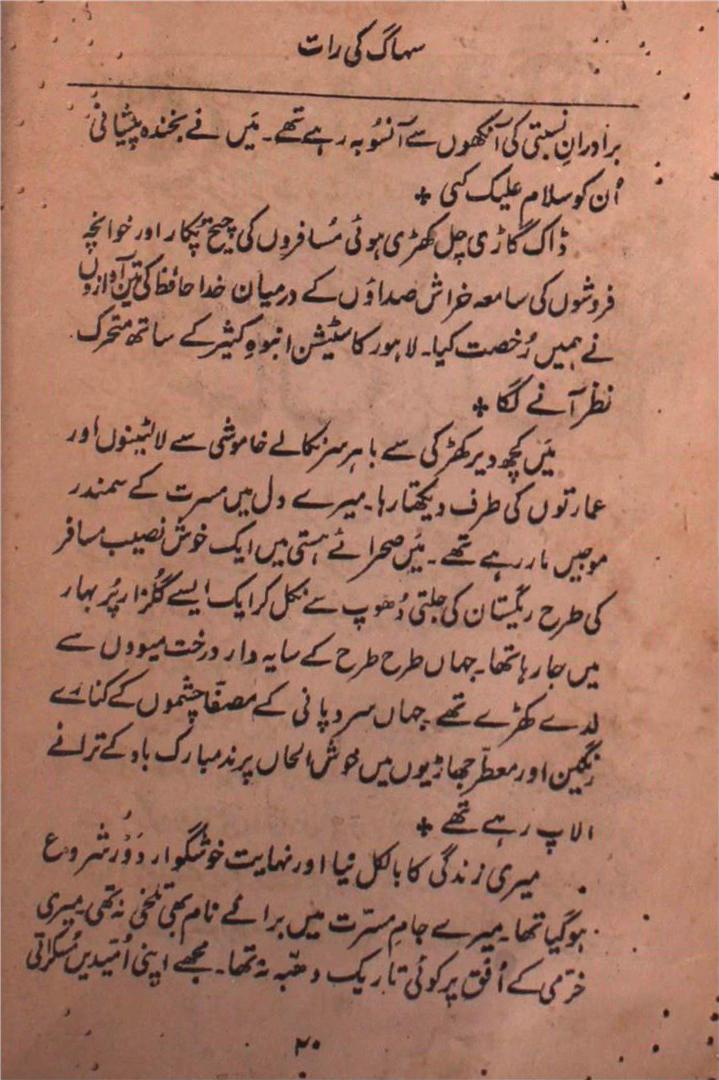 سہاگ کی رات
برادرانِ نسبتی کی آنکھوں سے آنسو بہ رہے تھے۔ میں نے بخندہ پیشانی
اُن کو سلام علیک کہی ٭
ڈاک گاڑی چل کھڑی ہوئی مُسافروں کی چیخ پُکار اور خوانچہ
فروشوں کی سامعہ خراش صداؤں کے درمیان خدا حافظ کی تین آوازوں
نے ہمیں رُخصت کیا۔ لاہور کا سٹیشن انبوہِ کثیر کے ساتھ متحرک
نظر آنے لگا ٭
میں کچھ دیر کھڑکی سے باہر سر نکالے خاموشی سے لالٹینوں اور
عمارتوں کی طرف دیکھتا رہا۔ میرے دل میں مسرت کے سمندر
موجیں مار رہے تھے۔ میں صحرائے ہستی میں ایک خوش نصیب مسافر
کی طرح ریگستان کی جلتی دُھوپ سے نکل کر ایک ایسے گلزارِ پُر بہار
میں جا رہا تھا۔ جہاں طرح طرح کے سایہ دار درخت میووں سے
لدے کھڑے تھے۔ جہاں سرد پانی کے مصفّا چشموں کے کنارے
رنگین اور معطّر جھاڑیوں میں خوش الحاں پرند مبارک باد کے ترانے
الاپ رہے تھے ٭
میری زندگی کا بالکل نیا اور نہایت خوشگوار دَور شروع
ہو گیا تھا۔ میرے جامِ مسرّت میں برائے نام بھی تلخی نہ تھی۔ میری
خرّمی کے اُفق پر کوئی تاریک دھبّہ نہ تھا۔ مجھے اپنی اُمّیدیں مُسکراتی
۲۰